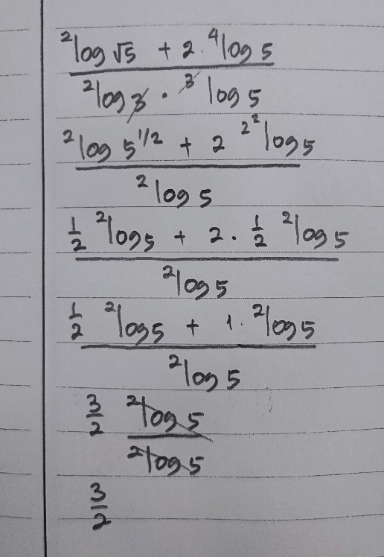 ²log √5 + 2 . ⁴log 5
²log 3 · ³log 5
²log 5^1/2 + 2 ^2²log 5
²log 5
1/2 ²log 5 + 2 . 1/2 ²log 5
²log 5
1/2 ²log 5 + 1 . ²log 5
²log 5
3/2 ²log 5
²log 5
3/2